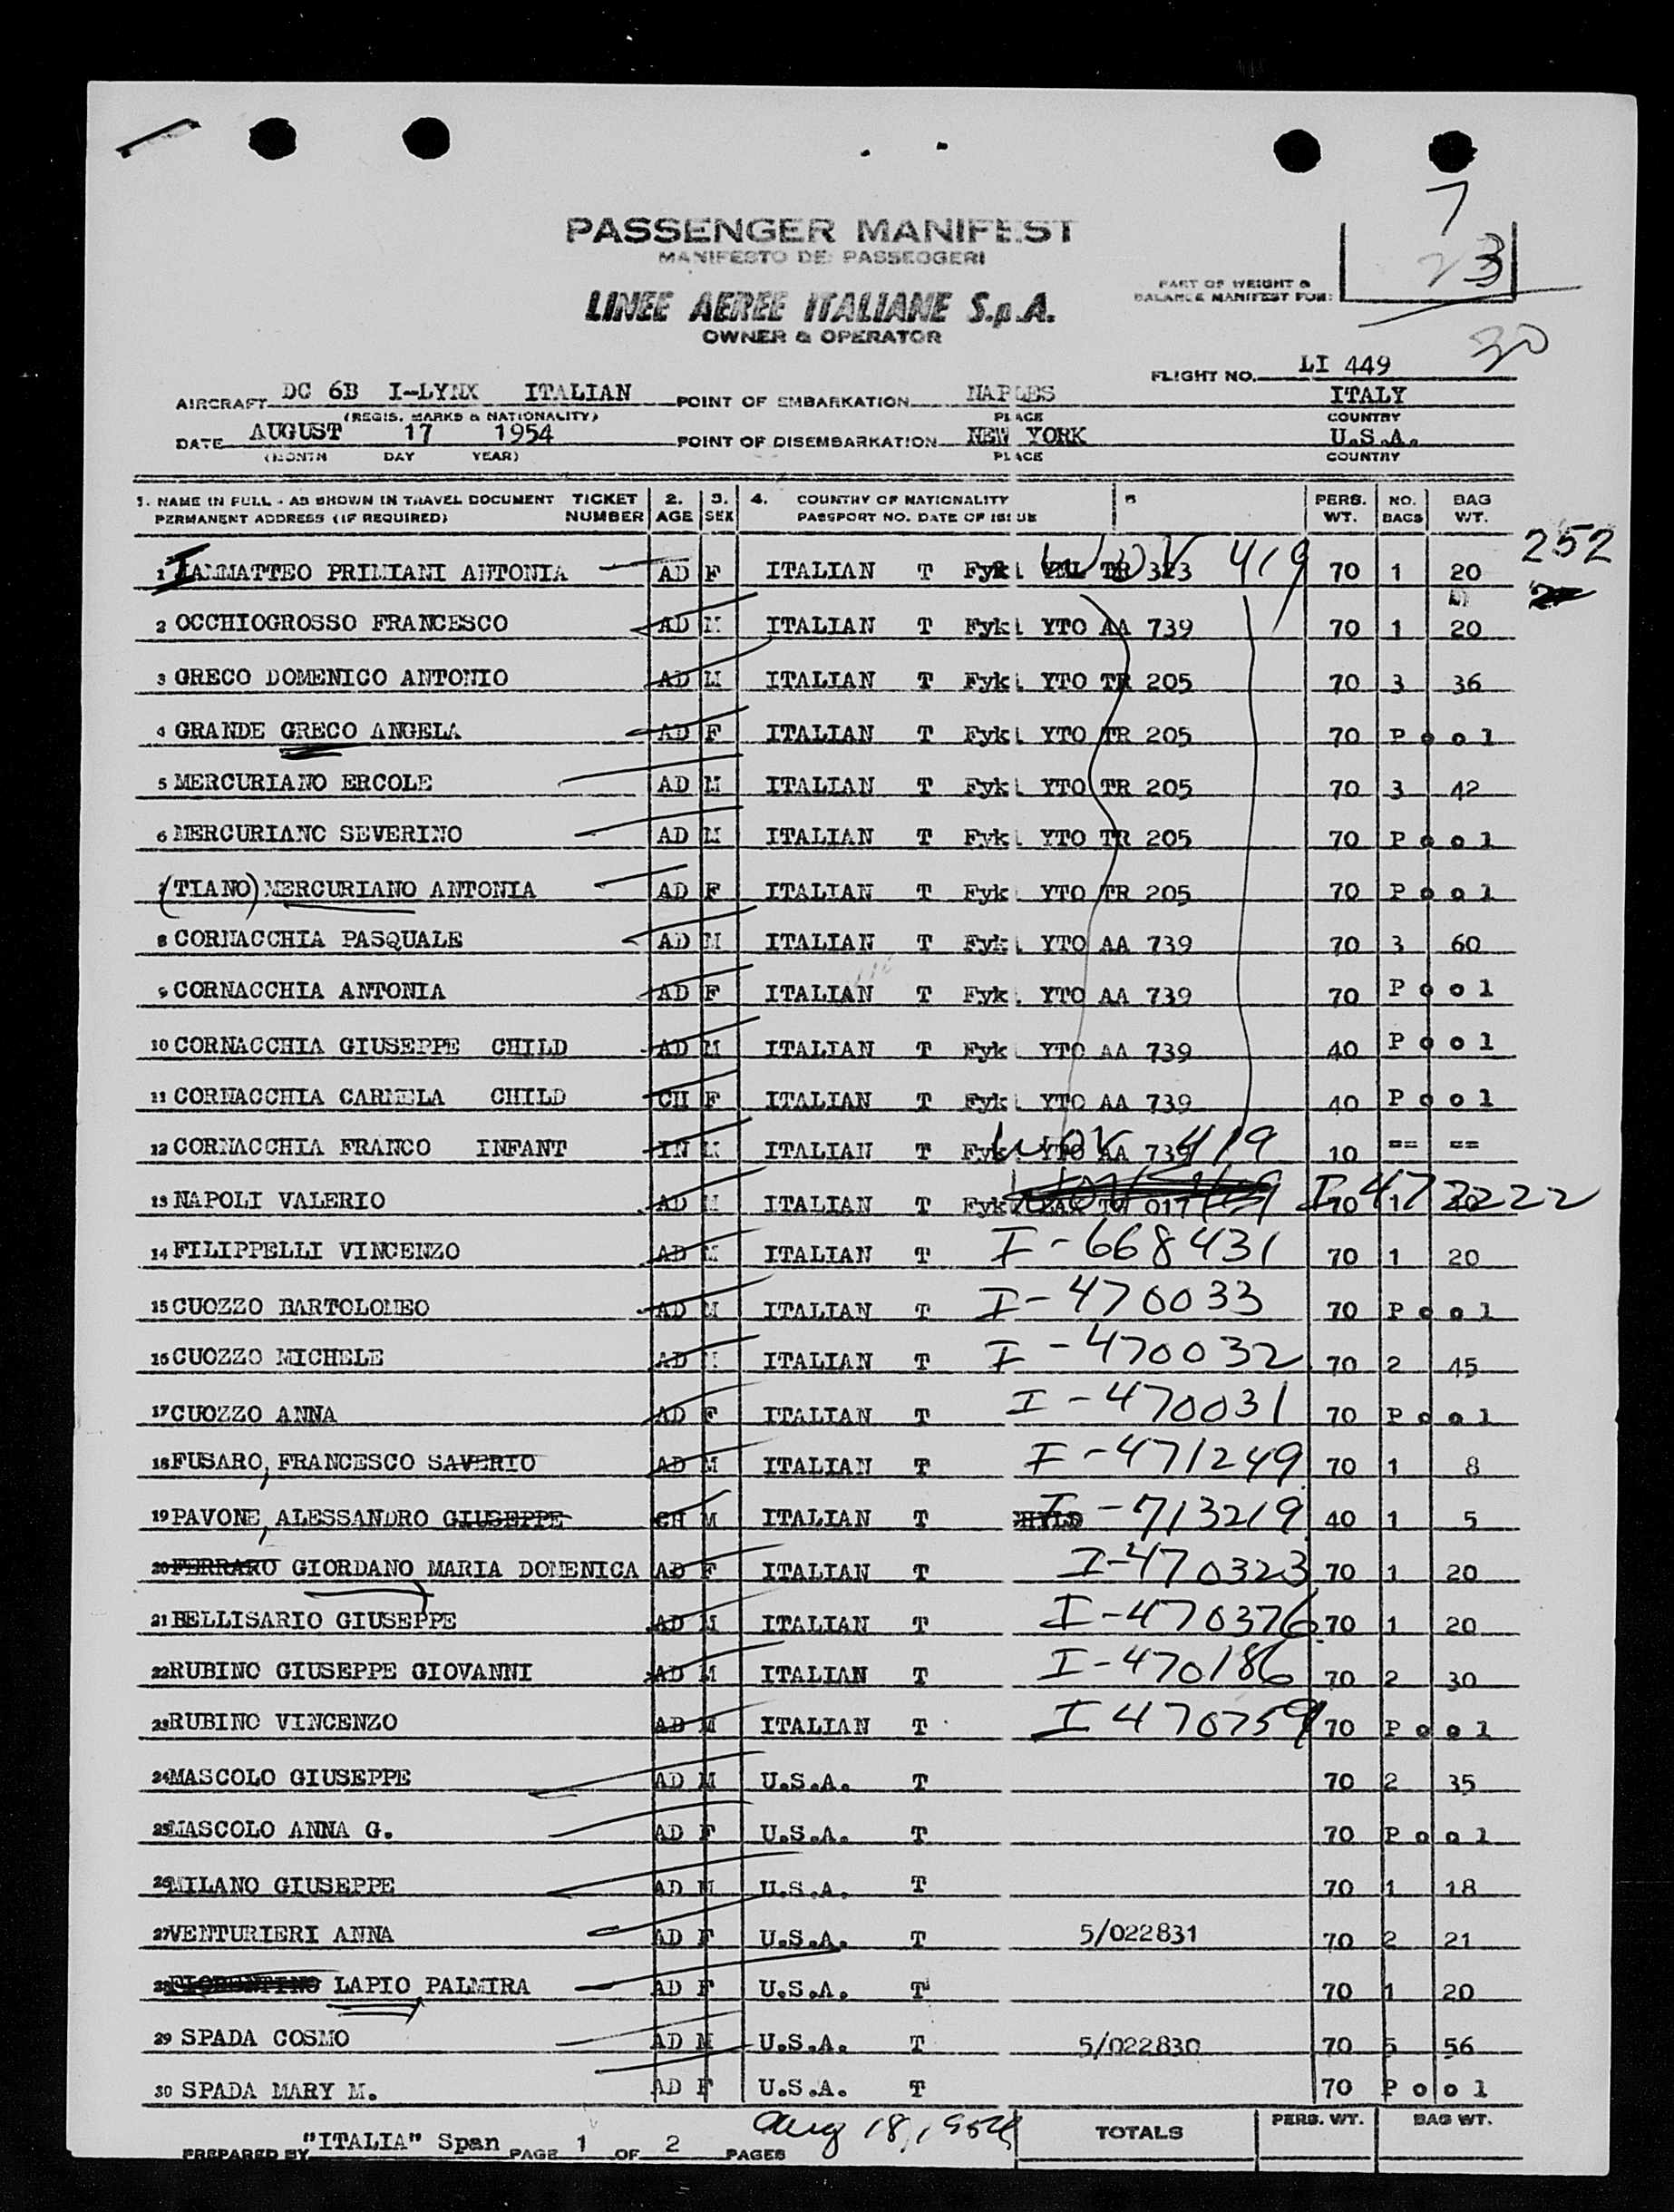 7
23
PASSENGER MANIFEST
MANIFESTO DEI PASSEGGERI
PART OF WEIGHT &
BALANCE MANIFEST FOR:
LINEE AEREE ITALIANE S.p.A.
OWNER & OPERATOR
30
FLIGHT NO. LI 449
AIRCRAFT DC 6B I-LYNX ITALIAN POINT OF EMBARKATION NAPLES ITALY
(REGIS. MARKS & NATIONALITY) PLACE COUNTRY
DATE AUGUST 17 1954 POINT OF DISEMBARKATION NEW YORK U.S.A.
(MONTH DAY YEAR) PLACE COUNTRY
1. NAME IN FULL - AS SHOWN IN TRAVEL DOCUMENT TICKET 2. 3. 4. COUNTRY OF NATIONALITY 5 PERS. NO. BAG
PERMANENT ADDRESS (IF REQUIRED) NUMBER AGE SEX PASSPORT NO. DATE OF ISSUE WT. BAGS WT.
252
1 IAMMATTEO PRIMIANI ANTONIA AD F ITALIAN T Fyk TR 323 WOV 419 70 1 20
2 OCCHIOGROSSO FRANCESCO AD M ITALIAN T Fyk YTO AA 739 70 1 20
3 GRECO DOMENICO ANTONIO AD M ITALIAN T Fyk YTO TR 205 70 3 36
4 GRANDE GRECO ANGELA AD F ITALIAN T Fyk YTO TR 205 70 Pool
5 MERCURIANO ERCOLE AD M ITALIAN T Fyk YTO TR 205 70 3 42
6 MERCURIANO SEVERINO AD M ITALIAN T Fyk YTO TR 205 70 Pool
7 (TIANO) MERCURIANO ANTONIA AD F ITALIAN T Fyk YTO TR 205 70 Pool
8 CORNACCHIA PASQUALE AD M ITALIAN T Fyk YTO AA 739 70 3 60
9 CORNACCHIA ANTONIA AD F ITALIAN T Fyk YTO AA 739 70 Pool
10 CORNACCHIA GIUSEPPE CHILD AD M ITALIAN T Fyk YTO AA 739 40 Pool
11 CORNACCHIA CARMELA CHILD CH F ITALIAN T Fyk YTO AA 739 40 Pool
12 CORNACCHIA FRANCO INFANT IN M ITALIAN T Fyk YTO AA 739 WOV 419 10 == ==
13 NAPOLI VALERIO AD M ITALIAN T Fyk 017 I 473222 70 1 20
14 FILIPPELLI VINCENZO AD M ITALIAN T I-668431 70 1 20
15 CUOZZO BARTOLOMEO AD M ITALIAN T I-470033 70 Pool
16 CUOZZO MICHELE AD M ITALIAN T I-470032 70 2 45
17 CUOZZO ANNA AD F ITALIAN T I-470031 70 Pool
18 FUSARO, FRANCESCO SAVERIO AD M ITALIAN T I-471249 70 1 8
19 PAVONE, ALESSANDRO GIUSEPPE CH M ITALIAN T CHILD I-713219 40 1 5
20 FERRARO GIORDANO, MARIA DOMENICA AD F ITALIAN T I-470323 70 1 20
21 BELLISARIO GIUSEPPE AD M ITALIAN T I-470376 70 1 20
22 RUBINO GIUSEPPE GIOVANNI AD M ITALIAN T I-470186 70 2 30
23 RUBINO VINCENZO AD M ITALIAN T I 470759 70 Pool
24 MASCOLO GIUSEPPE AD M U.S.A. T 70 2 35
25 MASCOLO ANNA G. AD F U.S.A. T 70 Pool
26 MILANO GIUSEPPE AD M U.S.A. T 70 1 18
27 VENTURIERI ANNA AD F U.S.A. T 5/022831 70 2 21
28 FIORENTINO LAPIO, PALMIRA AD F U.S.A. T 70 1 20
29 SPADA COSMO AD M U.S.A. T 5/022830 70 5 56
30 SPADA MARY M. AD F U.S.A. T 70 Pool
PREPARED BY "ITALIA" Span PAGE 1 OF 2 PAGES Aug 18, 1954 TOTALS PERS. WT. BAG WT.